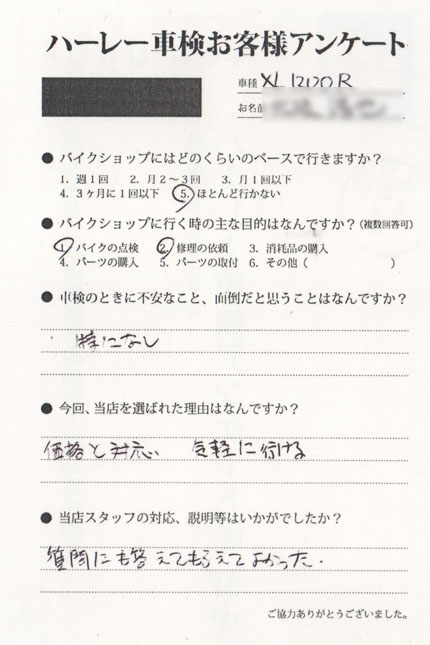 ハーレー車検お客様アンケート
車種 XL1200R
お名前
● バイクショップにはどのくらいのペースで行きますか？
1. 週1回 2. 月2～3回 3. 月1回以下
4. 3ヶ月に1回以下 5. ほとんど行かない
● バイクショップに行く時の主な目的はなんですか？(複数回答可)
1. バイクの点検 2. 修理の依頼 3. 消耗品の購入
4. パーツの購入 5. パーツの取付 6. その他（ ）
● 車検のときに不安なこと、面倒だと思うことはなんですか？
特になし
● 今回、当店を選ばれた理由はなんですか？
価格と対応 気軽に行ける
● 当店スタッフの対応、説明等はいかがでしたか？
質問にも答えてもらえてよかった.
ご協力ありがとうございました。